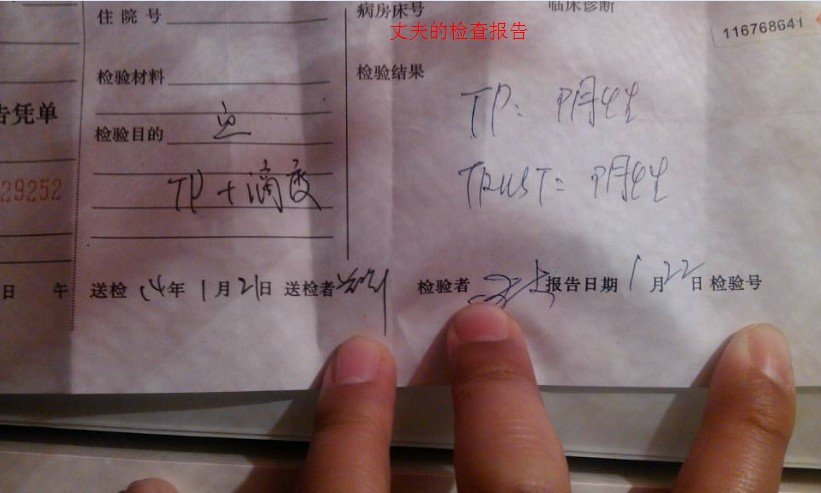 住院号
病房床号
临床诊断
丈夫的检查报告
116768641
检验材料
检验结果
告凭单
检验目的
TP: 阴性
29252
TP + 滴度
TRUST: 阴性
日 午 送检 14年1月21日 送检者
检验者 报告日期 1月22日 检验号